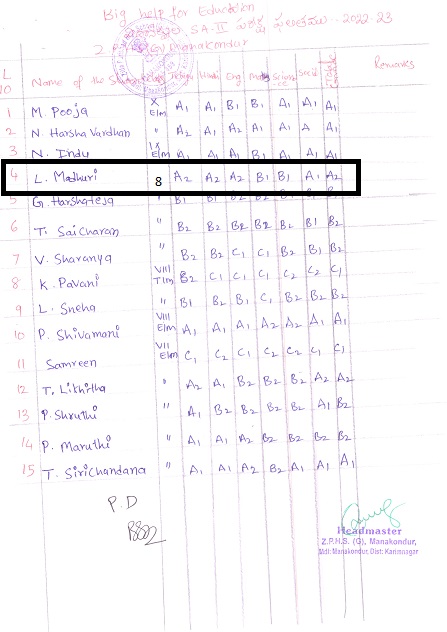 Big help for Education
SA-II 2022-23
Z.P.H.S (G) Manakondur
L NO Name of the Class Telugu Hindi Eng Maths Science Social Grade Remarks
1 M. Pooja X E/m A1 A1 B1 B1 A1 A1 A1
2 N. Harsha Vardhan " A2 A1 A2 A1 A1 A A1
3 N. Indu IX E/m A1 A1 B1 A1 A1
4 L. Madhuri 8 A2 A2 A2 B1 B1 A1 A2
5 G. Harshateja " B1 B1 B2 B2
6 T. Saicharan " B2 B2 B2 B2 B2 B1 B2
7 V. Sharanya " B2 B2 C1 C1 B2 B2 B2
8 K. Pavani VIII T/m B2 C1 C1 C1 C2 C2 C1
9 L. Sneha " B1 B2 B1 C1 B2 B2 B2
10 P. Shivamani VIII E/m A1 A1 A1 A2 A2 A1 A1
11 Samreen VII E/m C1 C2 C1 C2 C2 C1 C1
12 T. Likhitha " A2 A1 B2 B2 B2 A2 A2
13 P. Shruthi " A1 B2 B2 B2 B2 A1 B2
14 P. Maruthi " A1 A1 A2 B2 B2 B2 B2
15 T. Sirichandana " A1 A1 A2 B2 A1 A1 A1
P.D
Headmaster
Z.P.H.S. (G), Manakondur,
Mdl: Manakondur, Dist: Karimnagar